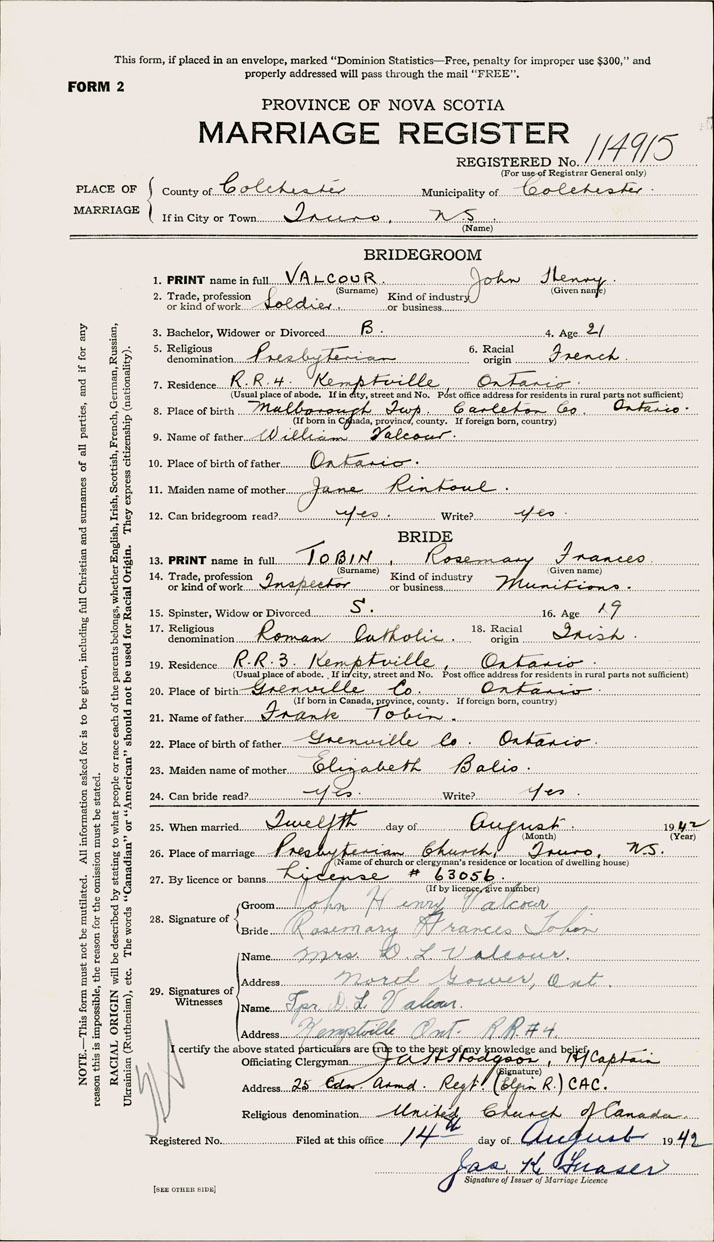 This form, if placed in an envelope, marked "Dominion Statistics—Free, penalty for improper use $300," and
properly addressed will pass through the mail "FREE".
FORM 2
PROVINCE OF NOVA SCOTIA
MARRIAGE REGISTER
REGISTERED No. 114915
(For use of Registrar General only)
PLACE OF MARRIAGE
County of Colchester Municipality of Colchester.
If in City or Town Truro, NS.
(Name)
BRIDEGROOM
1. PRINT name in full VALCOUR. John Henry.
(Surname) (Given name)
2. Trade, profession or kind of work Soldier. Kind of industry or business
3. Bachelor, Widower or Divorced B. 4. Age 21
5. Religious denomination Presbyterian 6. Racial origin French.
7. Residence R.R.4. Kemptville, Ontario.
(Usual place of abode. If in city, street and No. Post office address for residents in rural parts not sufficient)
8. Place of birth Malborough Twp. Carleton Co. Ontario.
(If born in Canada, province, county. If foreign born, country)
9. Name of father William Valcour.
10. Place of birth of father Ontario.
11. Maiden name of mother Jane Rintoul.
12. Can bridegroom read? yes. Write? yes.
BRIDE
13. PRINT name in full TOBIN, Rosemary Frances
(Surname) (Given name)
14. Trade, profession or kind of work Inspector Kind of industry or business Munitions.
15. Spinster, Widow or Divorced S. 16. Age 19
17. Religious denomination Roman Catholic. 18. Racial origin Irish.
19. Residence R.R.3. Kemptville, Ontario.
(Usual place of abode. If in city, street and No. Post office address for residents in rural parts not sufficient)
20. Place of birth Grenville Co. Ontario.
(If born in Canada, province, county. If foreign born, country)
21. Name of father Frank Tobin.
22. Place of birth of father Grenville Co. Ontario.
23. Maiden name of mother Elizabeth Balis.
24. Can bride read? Yes. Write? Yes.
25. When married Twelfth day of August. 1942
(Month) (Year)
26. Place of marriage Presbyterian Church, Truro, N.S.
(Name of church or clergyman's residence or location of dwelling house)
27. By licence or banns License # 63056.
(If by licence, give number)
28. Signature of
Groom John Henry Valcour
Bride Rosemary Frances Tobin
29. Signatures of Witnesses
Name Mrs. D. L. Valcour.
Address North Gower, Ont.
Name Tpr. D. L. Valcour.
Address Kemptville Ont. RR#4
I certify the above stated particulars are true to the best of my knowledge and belief.
Officiating Clergyman Jas H Hodgson, H/Captain
(Signature)
Address 25 Cdn Armd. Regt. (Elgin R.) CAC.
Religious denomination United Church of Canada.
Registered No. Filed at this office 14th day of August 1942
Jas. K. Fraser
Signature of Issuer of Marriage Licence
[SEE OTHER SIDE]
NOTE.—This form must not be mutilated. All information asked for is to be given, including full Christian and surnames of all parties, and if for any
reason this is impossible, the reason for the omission must be stated.
RACIAL ORIGIN will be described by stating to what people or race each of the parents belongs, whether English, Irish, Scottish, French, German, Russian,
Ukrainian (Ruthenian), etc. The words "Canadian" or "American" should not be used for Racial Origin. They express citizenship (nationality).